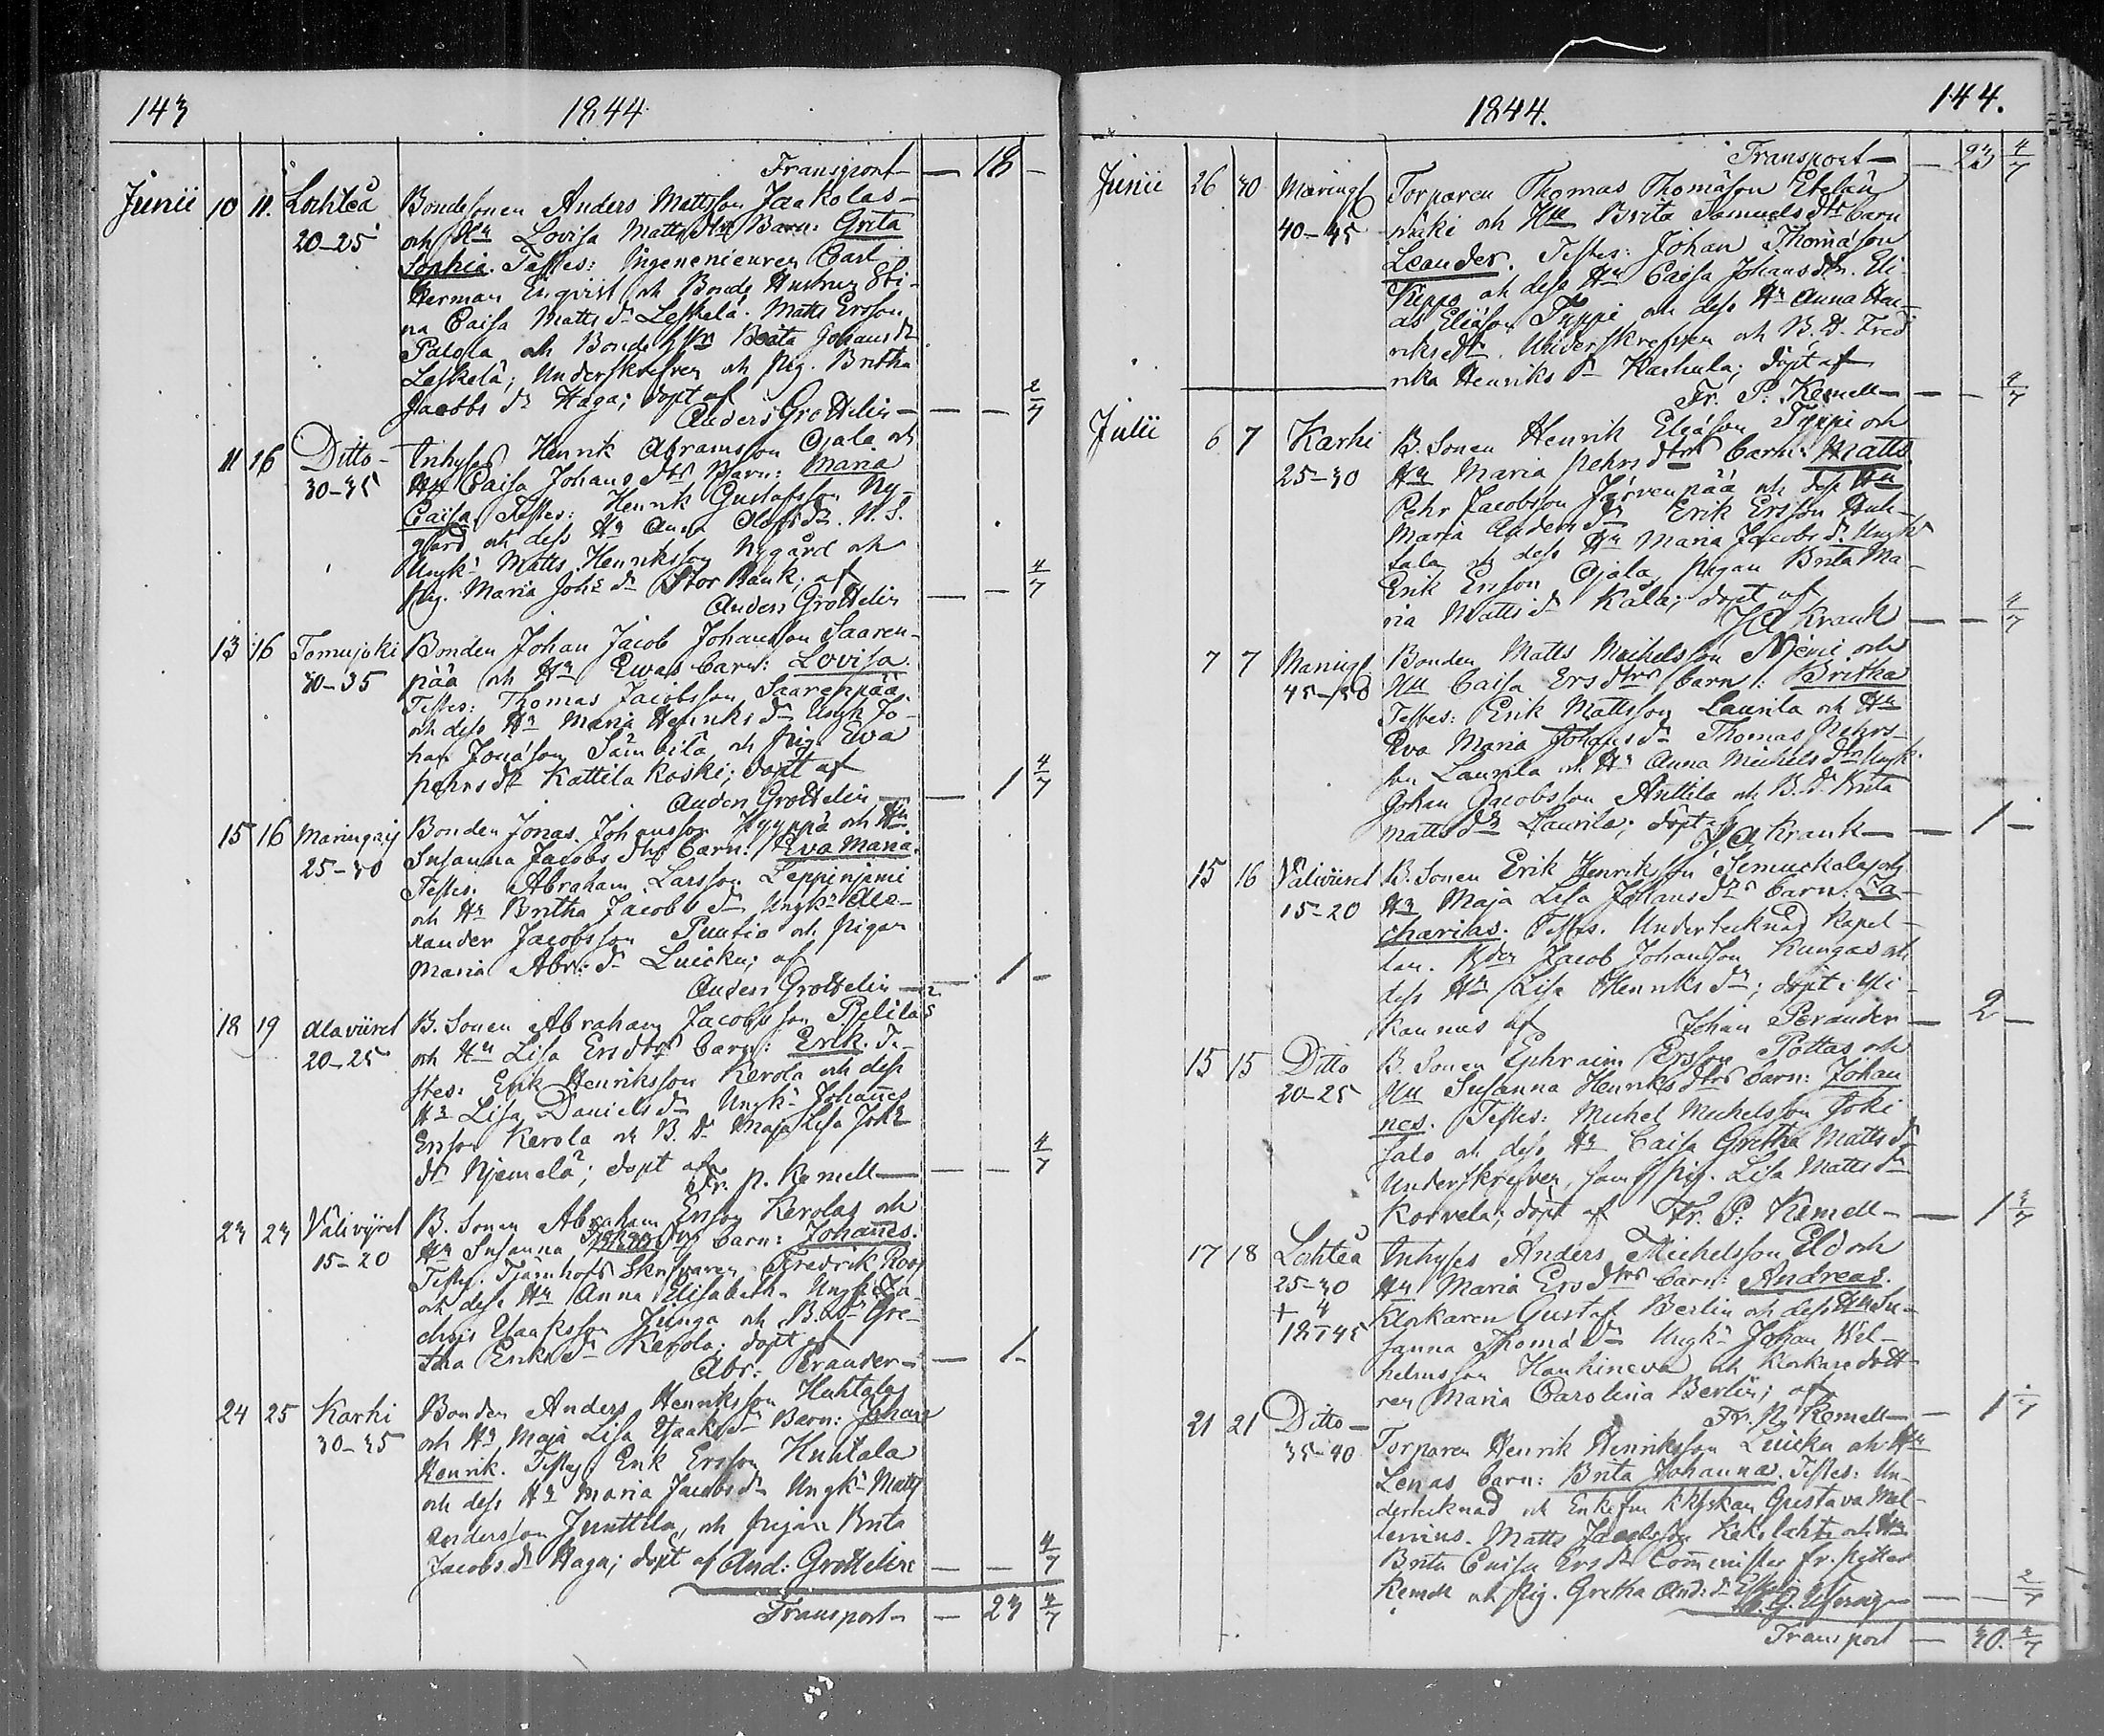 143
1844
Transport — 18 —
Junii 10 11. Lochteå Bondesonen Anders Mattsson Jaakolas
20-25 och Hu Lovisa Matts dtrs Barn: Grita
Sophia. Testes: Ingenieuren Carl
Herman Enqvist och Bonde Hustrun Sti-
na Caisa Matts dr Leskelä. Matts Ersson
Palola och Bonde H Beata Johans dr
Leskelä; Underskrefven och Pig. Britha
Jacobs dr Haga; döpt af
Anders Grottelin — — 2/7
11 16 Ditto- Inhyses Henrik Abramsson Ojala och
30-35 Hu Caisa Johans dtrs Barn: Maria
Caisa. Testes: Henrik Gustafsson Ny-
gård och dess Hu Anna Olofs dr. N. S.
Ungk. Matts Henriksson Nygård och
Pig. Maria Johs dr Stor Bank; af
Anders Grottelin — — 4/7
13 16 Tomujoki Bonden Johan Jacob Johansson Saaren-
30-35 pää och Hu Ewas barn: Lovisa.
Testes: Thomas Jacobsson Saarenpää
och dess Hu Maria Henriks dr Ungk Jo-
han Jonasson och Pig. Eva
Pehrs dr Kattilakoski; döpt af
Anders Grottelin — — 1 4/7
15 16 Maringais Bonden Jonas Johansson Hyyppä och Hu
25-30 Susanna Jacobs dtrs barn: Eva Maria.
Testes. Abraham Larsson Leppiniemi
och Hu Britha Jacobs dr Ungk: Ale-
xander Jacobsson Puutio och Pigan
Maria Abr: dr Luicku; af
Anders Grottelin — — 1 —
18 19 Alaviiret B. Sonen Abraham Jacobsson Pelilas
20-25 och Hu Lisa Ers dtrs barn: Erik. Te-
stes: Erik Henriksson Kerola och dess
Hu Lisa Daniels dr Ungk: Johannes
Ersson Kerola och B. Dr Maja Lisa Johs
dr Njemelä; döpt af
Fr. P. Kemell — — 4/7
23 23 Väliviret B. Sonen Abraham Ersson Kerolas och
15-20 Hu Susanna barn: Johannes.
Testes. Fredrik Roos
och dess Hu Anna Elisabeth. Ungk Za-
chris Isaksson Junga och B. Dr Gre-
tha Eriks dr Kerola; döpt af
Abr: Perander — — 1 —
24 25 Karhi Bonden Anders Henriksson Huhtalas
30-35 och Hu Maja Lisa Isaks dr Barn: Johan
Henrik. Testes Erik Ersson Huhtala
och dess Hu Maria Jacobs dr Ungk: Matts
Andersson Junttila, och Pigan Brita
Jacobs dr Haga; döpt af And: Grottelin — — 4/7
Transport — 23 4/7
144.
1844.
Transport — — 23 4/7
Junii 26 30 Maringf Torparen Thomas Thomasson Etelä
40-45 mäki och Hu Brita Samuels dtrs barn
Leander. Testes: Johan Thomasson
Keppo och dess Hu Caisa Johans dtr. Eli-
as Eliasson Typpi och dess Hu Anna Hen-
riks dtr. Underskrefven och B. D. Fred
rika Henriks dr Karhula; döpt af
Fr. P. Kemell — — 4/7
Julii 6 7 Karhi B. Sonen Henrik Eliasson Typpi och
25-30 Hu Maria Pehrs dtrs barn: Matts
Pehr Jacobsson Järvenpää och dess Hu
Maria Anders dr Erik Ersson Huh-
tala och dess Hu Maria Jacobs dr. Ungk
Erik Ersson Ojala, Pigan Brita Ma-
ria Matts dr Kåla; döpt af
J A Krank — — 4/7
7 7 Maringf Bonden Matts Michelsson Njemi och
45-50 Hu Caisa Ers dtrs barn: Britha
Testes: Erik Mattsson Laurila och Hu
Eva Maria Johans dr Thomas Pehrs-
son Laurila och Hu Anna Michels dtr Ungk.
Johan Jacobsson Anttila och B. Dr Brita
Matts dr Laurila; döpt af
J A Krank — — 1 —
15 16 Väliviiret B. Sonen Erik Henriksson och
15-20 Hu Maja Lisa Johans dtrs barn. Za-
charias. Testes. Undertecknad Kapel-
lan. Bden Jacob Johansson Kungas och
dess Hu Lisa Henriks dr; döpt i Yli-
kannus af
Johan Perander — — 2 —
15 15 Ditto B. Sonen Ephraim Ersson Pottas och
20-25 Hu Susanna Henriks dtrs barn: Johan
nes. Testes: Michel Michelsson Joki
salo och dess Hu Caisa Gretha Matts dr
Underskrefven, samt Pig. Lisa Matts dr
Korvela; döpt af Fr. P: Kemell — — 1 3/7
17 18 Lochteå Inhyses Anders Michelsson Eld och
25-30 Hu Maria Ers dtrs barn: Andreas.
+ 4/7 1845 Klockaren Gustaf Berlin och dess Hu Su-
sanna Thomæ dr Ungk: Johan Wil-
helmsson Hanhineva och Klockaredott-
ren Maria Carolina Berlin; af
Fr. P. Kemell — — 1 /7
21 21 Ditto — Torparen Henrik Henriksson Luicku och Hu
35-40 Lenas barn: Brita Johanna. Testes: Un-
dertecknad och Enkefru Gustava
Matts Jacobsson Kekolahti och Hu
Brita Caisa Ers dr Comminister Fr. Petter
Kemell och Pig. Gretha And: dr
— — 2/7
Transport — 30. 4/7